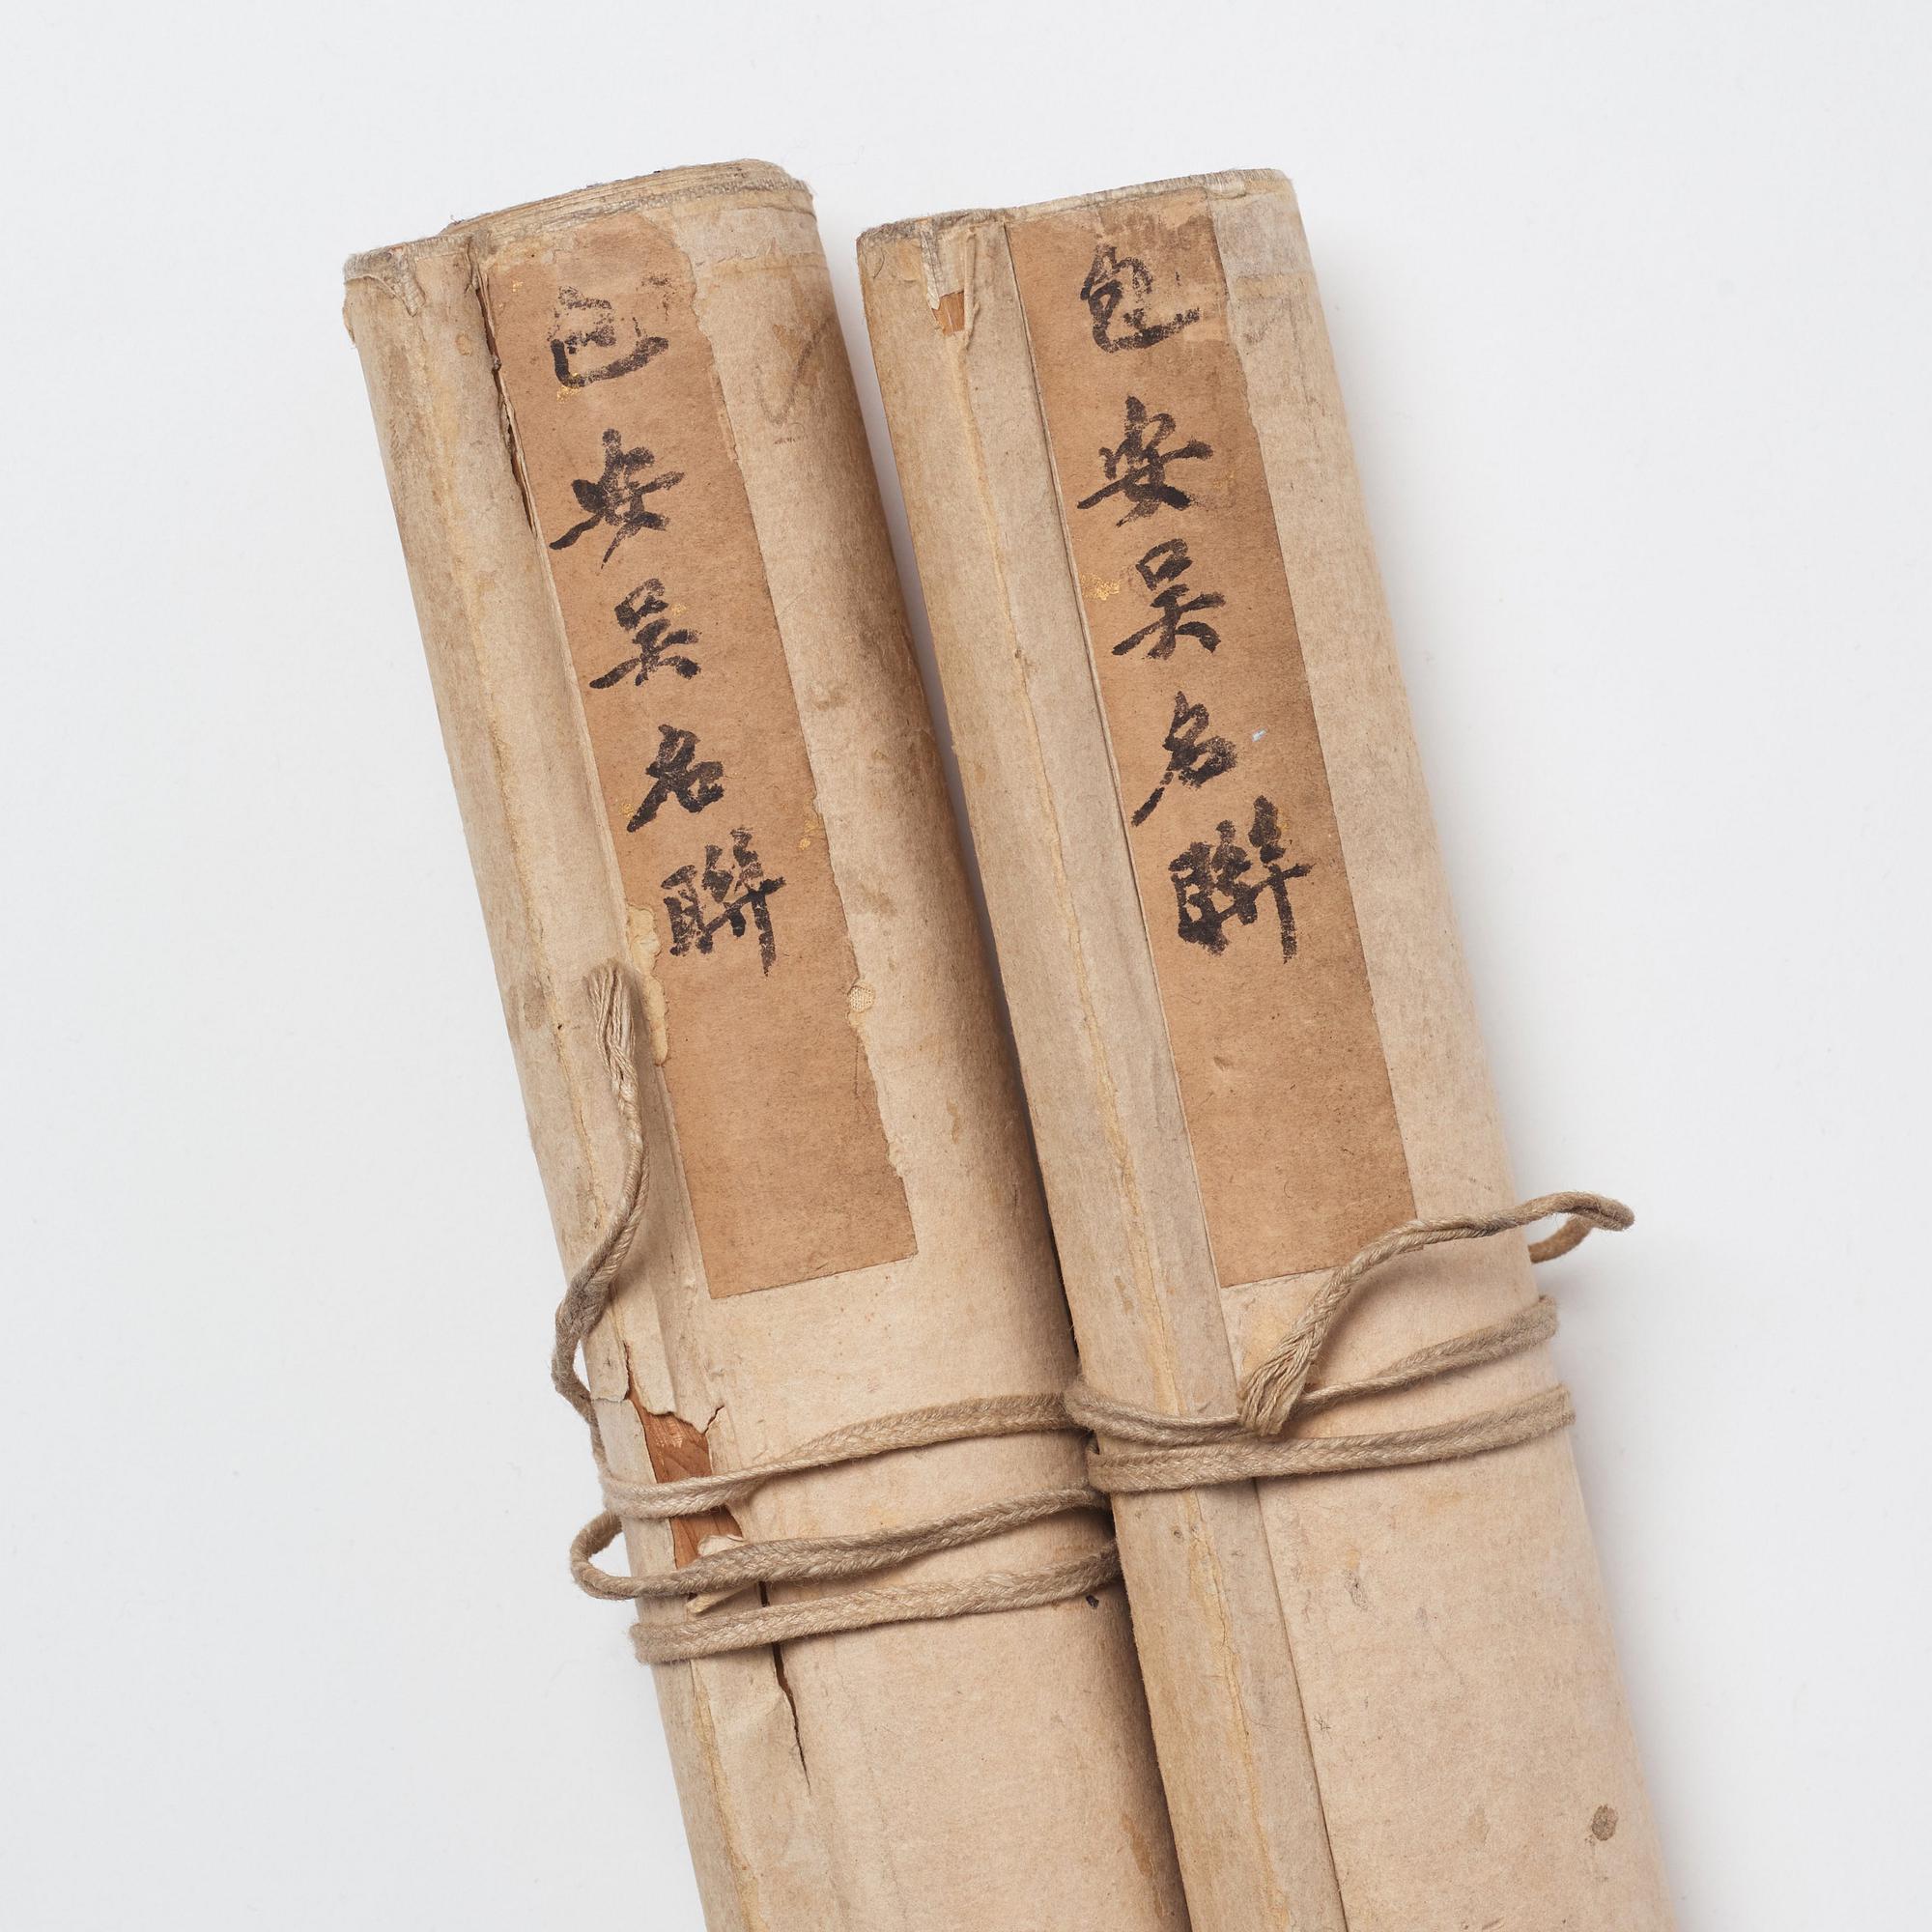 包安吳名聯
包安吳名聯